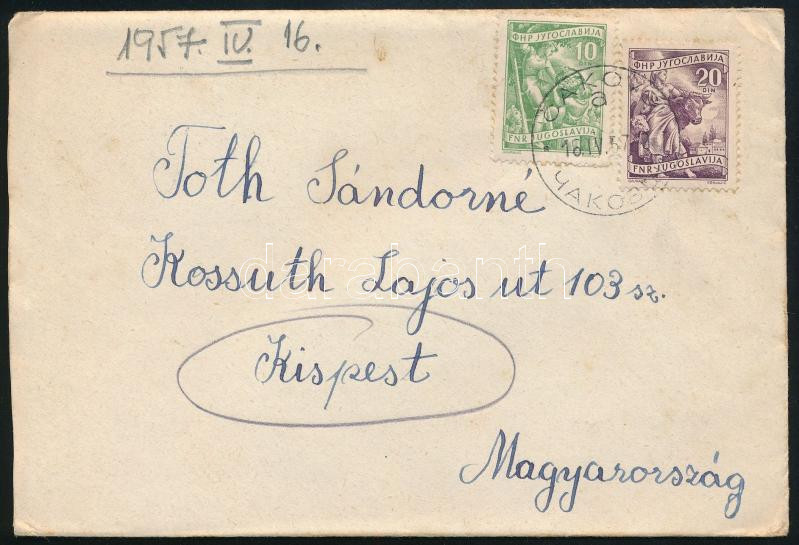 1957. IV. 16.
10
DIN
ФНР ЈУГОСЛАВИЈА
FNR JUGOSLAVIJA
ФНР ЈУГОСЛАВИЈА
20
DIN
FNR JUGOSLAVIJA
16.IV.57
ЧАКО
Toth Sándorné
Kossuth Lajos ut 103 sz.
Kispest
Magyarország
darabanth